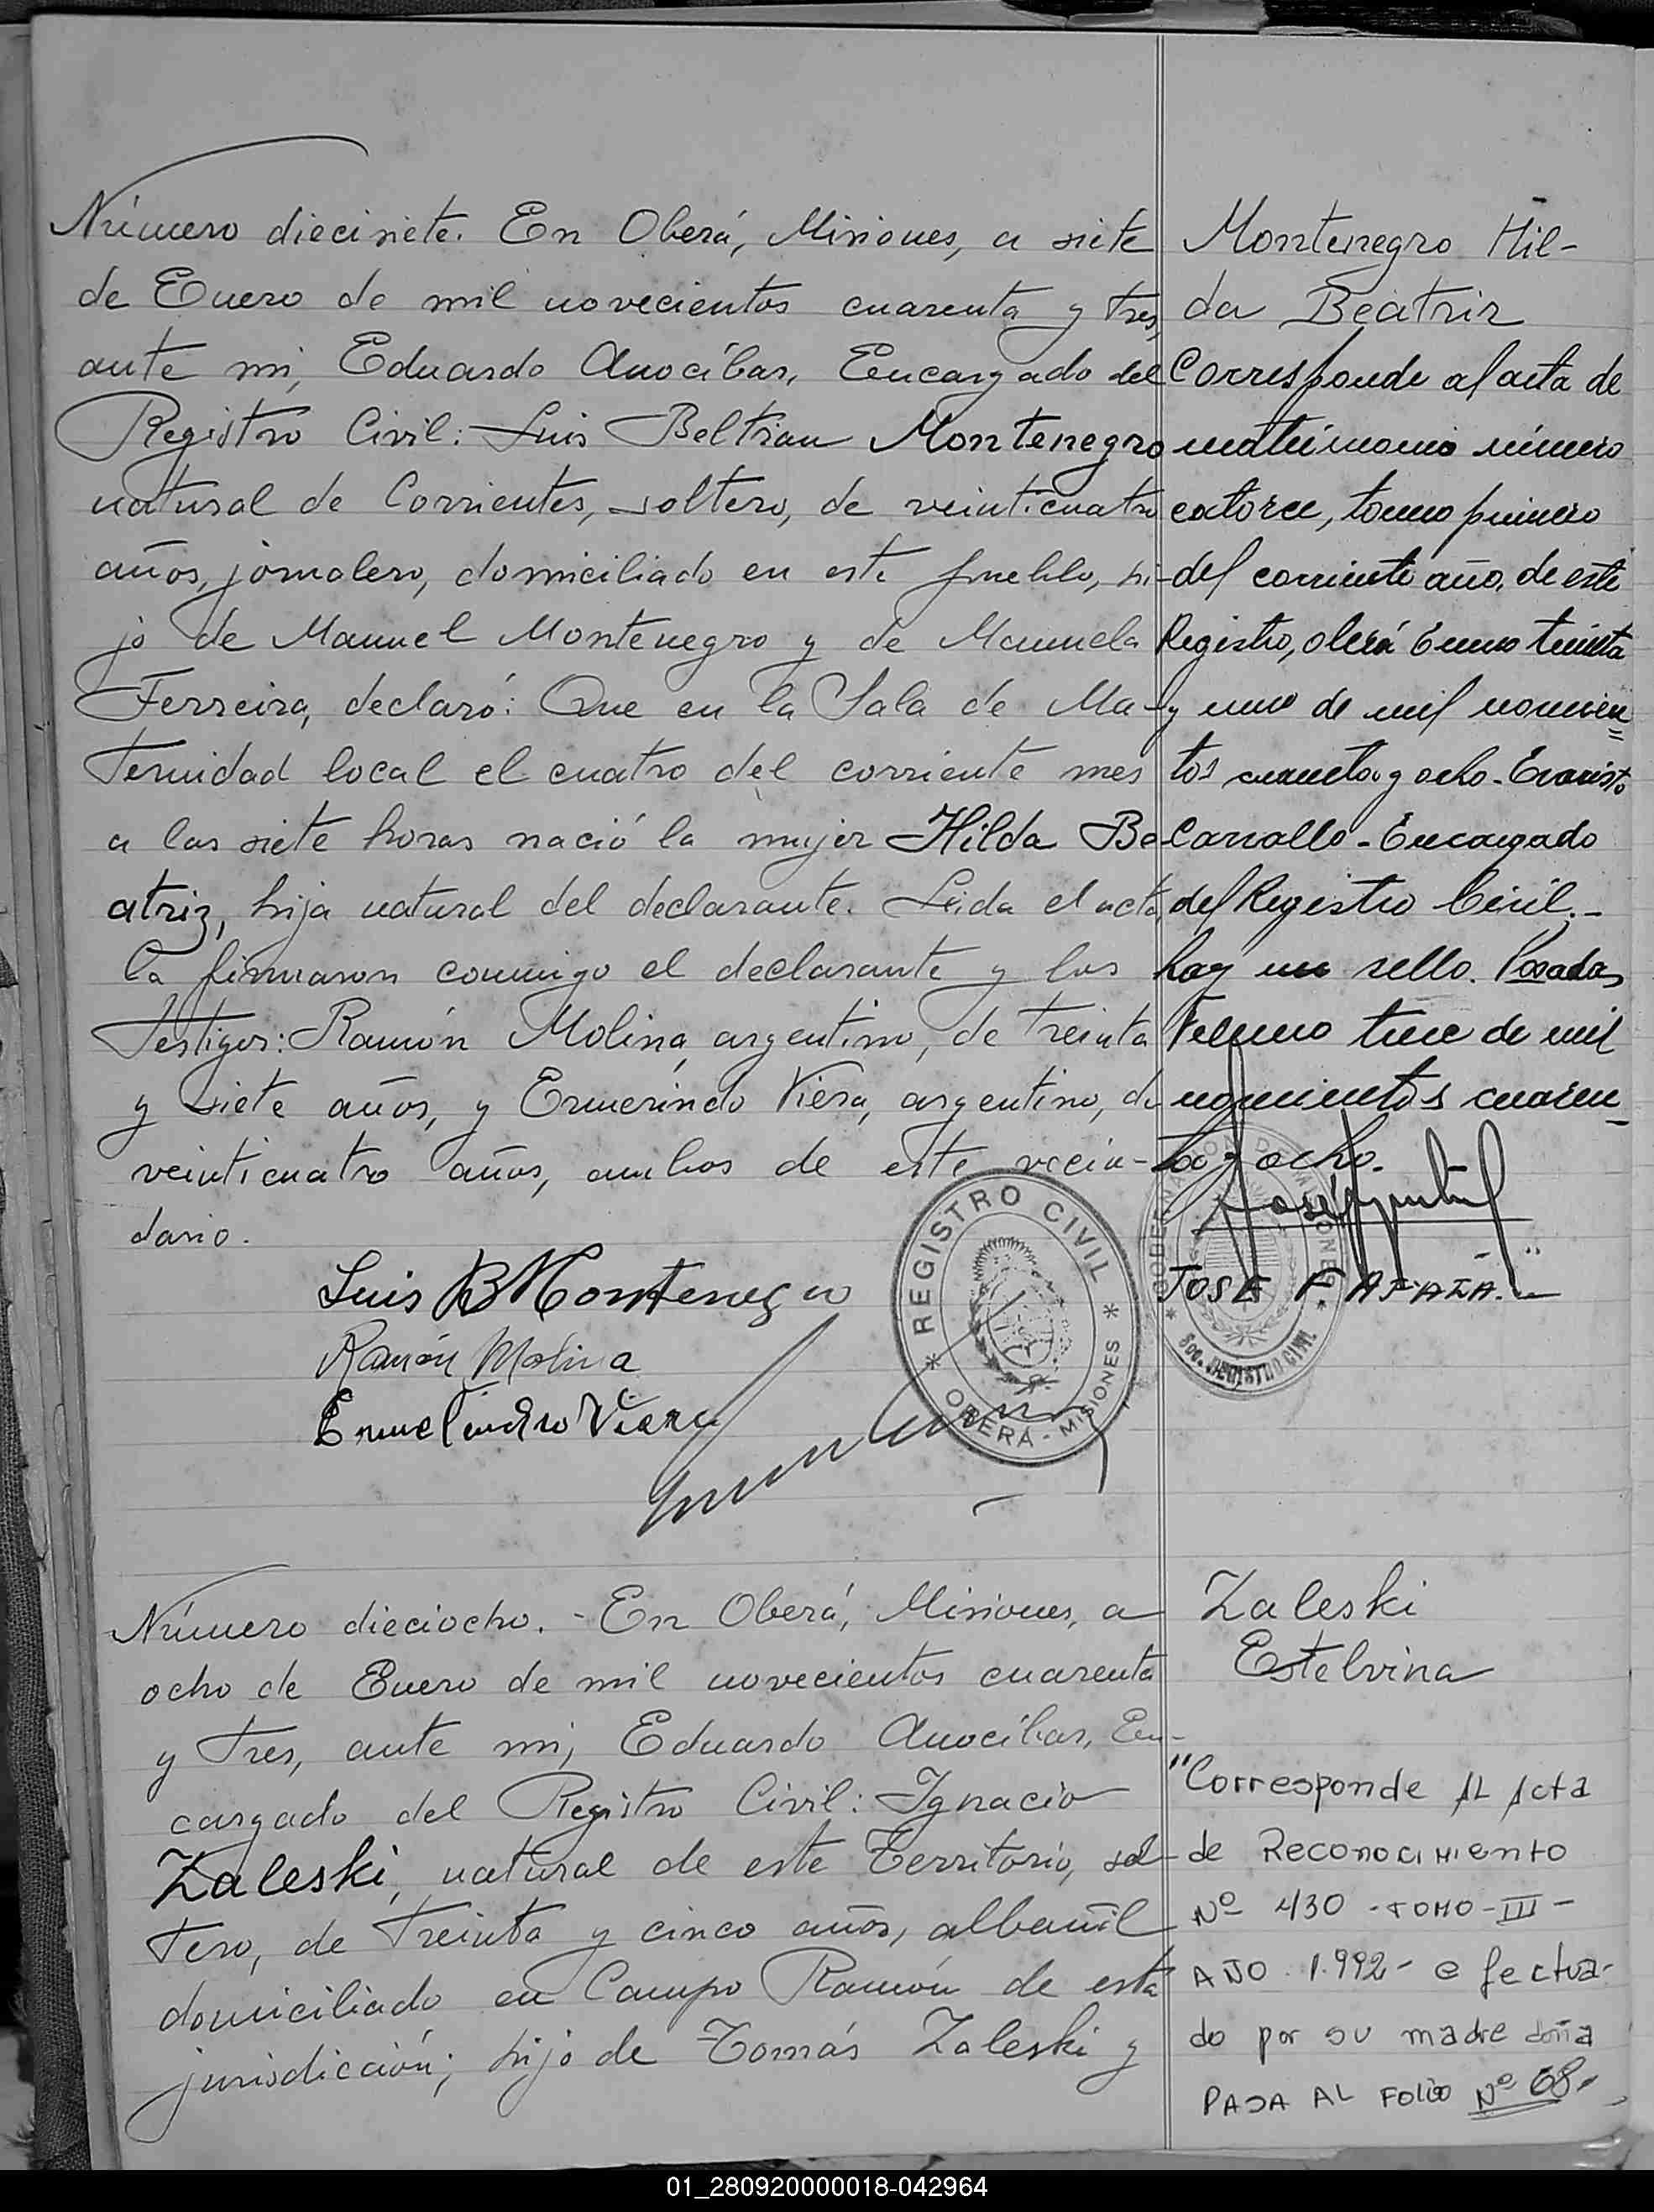 Número diecisiete. En Oberá, Misiones, a siete
de Enero de mil novecientos cuarenta y tres,
ante mi, Eduardo Anocíbar, Encargado del
Registro Civil: Luis Beltran Montenegro
natural de Corrientes, soltero, de veinticuatro
años, jornalero, domiciliado en este pueblo, hi-
jo de Manuel Montenegro y de Manuela
Ferreira, declaró: Que en la Sala de Ma-
ternidad local el cuatro del corriente mes
a las siete horas nació la mujer Hilda Be-
atriz, hija natural del declarante. Leida el acta,
la firmaron conmigo el declarante y los
testigos: Ramón Molina, argentino, de treinta
y siete años, y Ermerindo Viera, argentino, de
veinticuatro años, ambos de este vecin-
dario.
Luis B Montenegro
Ramón Molina
Viera
REGISTRO CIVIL
OBERA - MISIONES
Montenegro Hil-
da Beatriz
Corresponde al acta de
matrimonio número
catorce, tomo primero
del corriente año, de este
Registro, Oberá Enero treinta
y uno de mil novecien=
tos cuarenta y ocho - Evaristo
Carvallo - Encargado
del Registro Civil.-
hay un sello. Posadas
Febrero trece de mil
novecientos cuaren-
ta y ocho.
JOSE F.
REGISTRO CIVIL
Número dieciocho. - En Oberá, Misiones, a
ocho de Enero de mil novecientos cuarenta
y tres, ante mi, Eduardo Anocíbar, En-
cargado del Registro Civil: Ignacio
Zaleski, natural de este Territorio, sol-
tero, de treinta y cinco años, albañil
domiciliado en Campo Ramón de esta
jurisdicción; hijo de Tomás Zaleski y
Zaleski
Estelvina
"Corresponde AL Acta
de Reconocimiento
Nº 430 - TOMO - III -
AÑO 1.992 - efectua-
do por su madre doña
PASA AL FOLIO Nº 68.
01_280920000018-042964